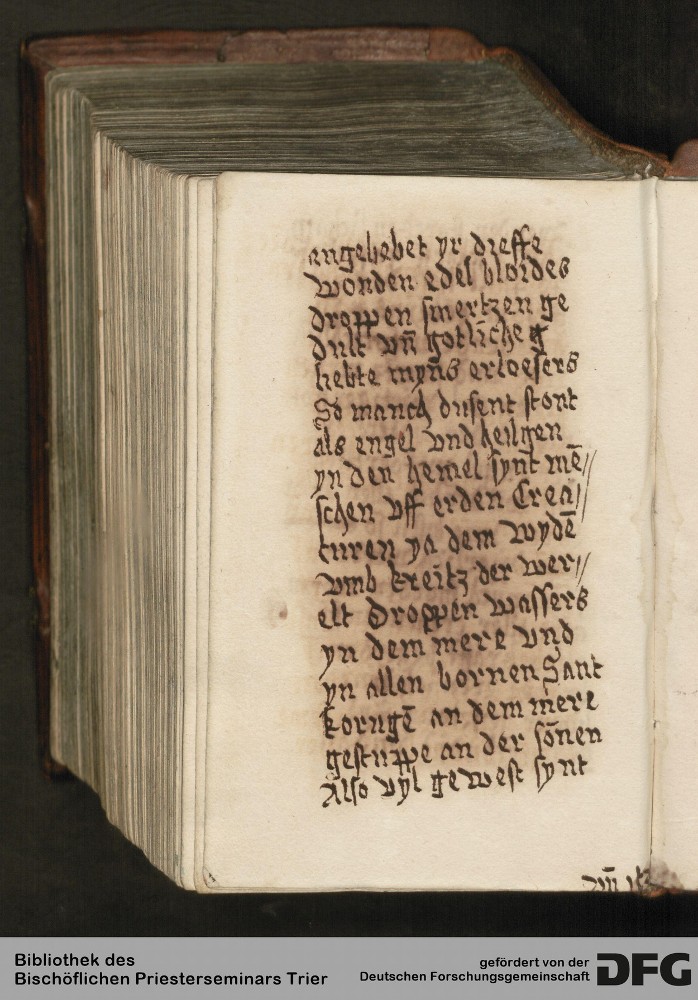 angehebet yr dieffe
wonden edel bloides
droppen smertzen ge
dult vn̄ gotlīche g
liebte myn̄s erloesers
So manch dusent stont
als engel vnd heilgen
yn den hemel synt mē//
schen vff erden Crea//
turen yn dem wydē
vmb kreitz der wer//
elt Droppen wassers
yn dem mere vnd
yn allen bornen Sant
korngē an dem mere
gestuppe an der sōnen
Also vyl gewest synt
vn̄
Bibliothek des
Bischöflichen Priesterseminars Trier
gefördert von der
Deutschen Forschungsgemeinschaft
DFG